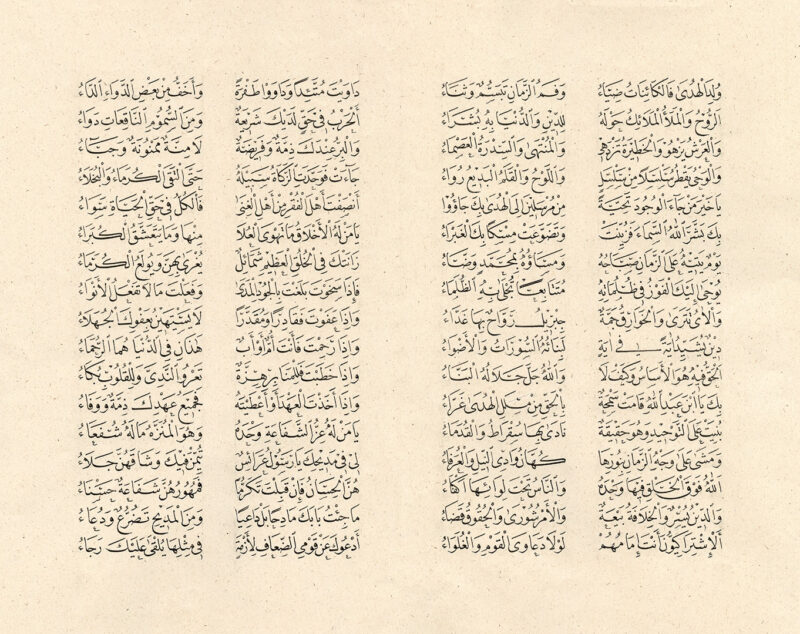 وُلِدَ الْهُدَىٰ فَالْكَائِنَاتُ ضِيَاءُ وَفَمُ الزَّمَانِ تَبَسُّمٌ وَثَنَاءُ
الرُّوحُ وَالْمَلَأُ الْمَلَائِكُ حَوْلَهُ لِلدِّينِ وَالدُّنْيَا بِهِ بُشَرَاءُ
وَالْعَرْشُ يَزْهُو وَالْحَظِيرَةُ تَزْدَهِي وَالْمُنْتَهَىٰ وَالسِّدْرَةُ الْعَصْمَاءُ
وَالْوَحْيُ يَقْطُرُ سَلْسَلًا مِنْ سَلْسَلٍ وَاللَّوْحُ وَالْقَلَمُ الْبَدِيعُ رُوَاءُ
يَا خَيْرَ مَنْ جَاءَ الْوُجُودَ تَحِيَّةً مِنْ مُرْسَلِينَ إِلَى الْهُدَىٰ بِكَ جَاؤُوا
بِكَ بَشَّرَ اللهُ السَّمَاءَ فَزُيِّنَتْ وَتَضَوَّعَتْ مِسْكًا بِكَ الْغَبْرَاءُ
يَوْمٌ يَتِيهُ عَلَى الزَّمَانِ صَبَاحُهُ وَمَسَاؤُهُ بِمُحَمَّدٍ وَضَّاءُ
يُوحِي إِلَيْكَ الْفَوْزُ فِي ظُلُمَاتِهِ مُتَتَابِعًا تُجْلَىٰ بِهِ الظَّلْمَاءُ
وَالْآيُ تَتْرَىٰ وَالْخَوَارِقُ جَمَّةٌ جِبْرِيلُ رَوَّاحٌ بِهَا غَدَّاءُ
دِينٌ يُشَيِّدُ آيَةً فِي آيَةٍ لَبِنَاتُهُ السُّورَاتُ وَالْأَضْوَاءُ
الْحَقُّ فِيهِ هُوَ الْأَسَاسُ وَكَيْفَ لَا وَاللهُ جَلَّ جَلَالُهُ الْبَنَّاءُ
بِكَ يَا ابْنَ عَبْدِ اللهِ قَامَتْ سَمْحَةٌ بِالْحَقِّ مِنْ مِلَلِ الْهُدَىٰ غَرَّاءُ
بُنِيَتْ عَلَى التَّوْحِيدِ وَهُوَ حَقِيقَةٌ نَادَىٰ بِهَا سُقْرَاطُ وَالْقُدَمَاءُ
وَمَشَىٰ عَلَىٰ وَجْهِ الزَّمَانِ بِنُورِهَا كُهَّانُ وَادِي النِّيلِ وَالْعُرَفَاءُ
اللهُ فَوْقَ الْخَلْقِ فِيهَا وَحْدَهُ وَالنَّاسُ تَحْتَ لِوَائِهَا أَكْفَاءُ
وَالدِّينُ يُسْرٌ وَالْخِلَافَةُ بَيْعَةٌ وَالْأَمْرُ شُورَىٰ وَالْحُقُوقُ قَضَاءُ
الْإِشْتِرَاكِيُّونَ أَنْتَ إِمَامُهُمْ لَوْلَا دَعَاوَى الْقَوْمِ وَالْغُلَوَاءُ
دَاوَيْتَ مُتَّئِدًا وَدَاوَوْا طَفْرَةً وَأَخَفُّ مِنْ بَعْضِ الدَّوَاءِ الدَّاءُ
الْحَرْبُ فِي حَقٍّ لَدَيْكَ شَرِيعَةٌ وَمِنَ السُّمُومِ النَّاقِعَاتِ دَوَاءُ
وَالْبِرُّ عِنْدَكَ ذِمَّةٌ وَفَرِيضَةٌ لَا مِنَّةٌ مَمْنُونَةٌ وَجِبَاءُ
جَاءَتْ فَوَحَّدَتِ الزَّكَاةُ سَبِيلَهُ حَتَّى الْتَقَى الْكُرَمَاءُ وَالْبُخَلَاءُ
أَنْصَفْتَ أَهْلَ الْفَقْرِ مِنْ أَهْلِ الْغِنَىٰ فَالْكُلُّ فِي حَقِّ الْحَيَاةِ سَوَاءُ
يَا مَنْ لَهُ الْأَخْلَاقُ مَا تَهْوَى الْعُلَا مِنْهَا وَمَا يَتَعَشَّقُ الْكُبَرَاءُ
زَانَتْكَ فِي الْخُلُقِ الْعَظِيمِ شَمَائِلٌ يُغْرَىٰ بِهِنَّ وَيُولَعُ الْكُرَمَاءُ
فَإِذَا سَخَوْتَ بَلَغْتَ بِالْجُودِ الْمَدَىٰ وَفَعَلْتَ مَا لَا تَفْعَلُ الْأَنْوَاءُ
وَإِذَا عَفَوْتَ فَقَادِرًا وَمُقَدَّرًا لَا يَسْتَهِينُ بِعَفْوِكَ الْجُهَلَاءُ
وَإِذَا رَحِمْتَ فَأَنْتَ أُمٌّ أَوْ أَبٌ هَٰذَانِ فِي الدُّنْيَا هُمَا الرُّحَمَاءُ
وَإِذَا خَطَبْتَ فَلِلْمَنَابِرِ هِزَّةٌ تَعْرُو النَّدِيَّ وَلِلْقُلُوبِ بُكَاءُ
وَإِذَا أَخَذْتَ الْعَهْدَ أَوْ أَعْطَيْتَهُ فَجَمِيعُ عَهْدِكَ ذِمَّةٌ وَوَفَاءُ
يَا مَنْ لَهُ عِزُّ الشَّفَاعَةِ وَحْدَهُ وَهُوَ الْمُنَزَّهُ مَا لَهُ شُفَعَاءُ
لِي فِي مَدِيحِكَ يَا رَسُولُ عَرَائِسٌ تُيِّمْنَ فِيكَ وَشَاقَهُنَّ جَلَاءُ
هُنَّ الْحِسَانُ فَإِنْ قَبِلْتَ تَكَرُّمًا فَمُهُورُهُنَّ شَفَاعَةٌ حَسْنَاءُ
مَا جِئْتُ بَابَكَ مَادِحًا بَلْ دَاعِيًا وَمِنَ الْمَدِيحِ تَضَرُّعٌ وَدُعَاءُ
أَدْعُوكَ عَنْ قَوْمِي الضِّعَافِ لِأَزْمَةٍ فِي مِثْلِهَا يُلْقَىٰ عَلَيْكَ رَجَاءُ